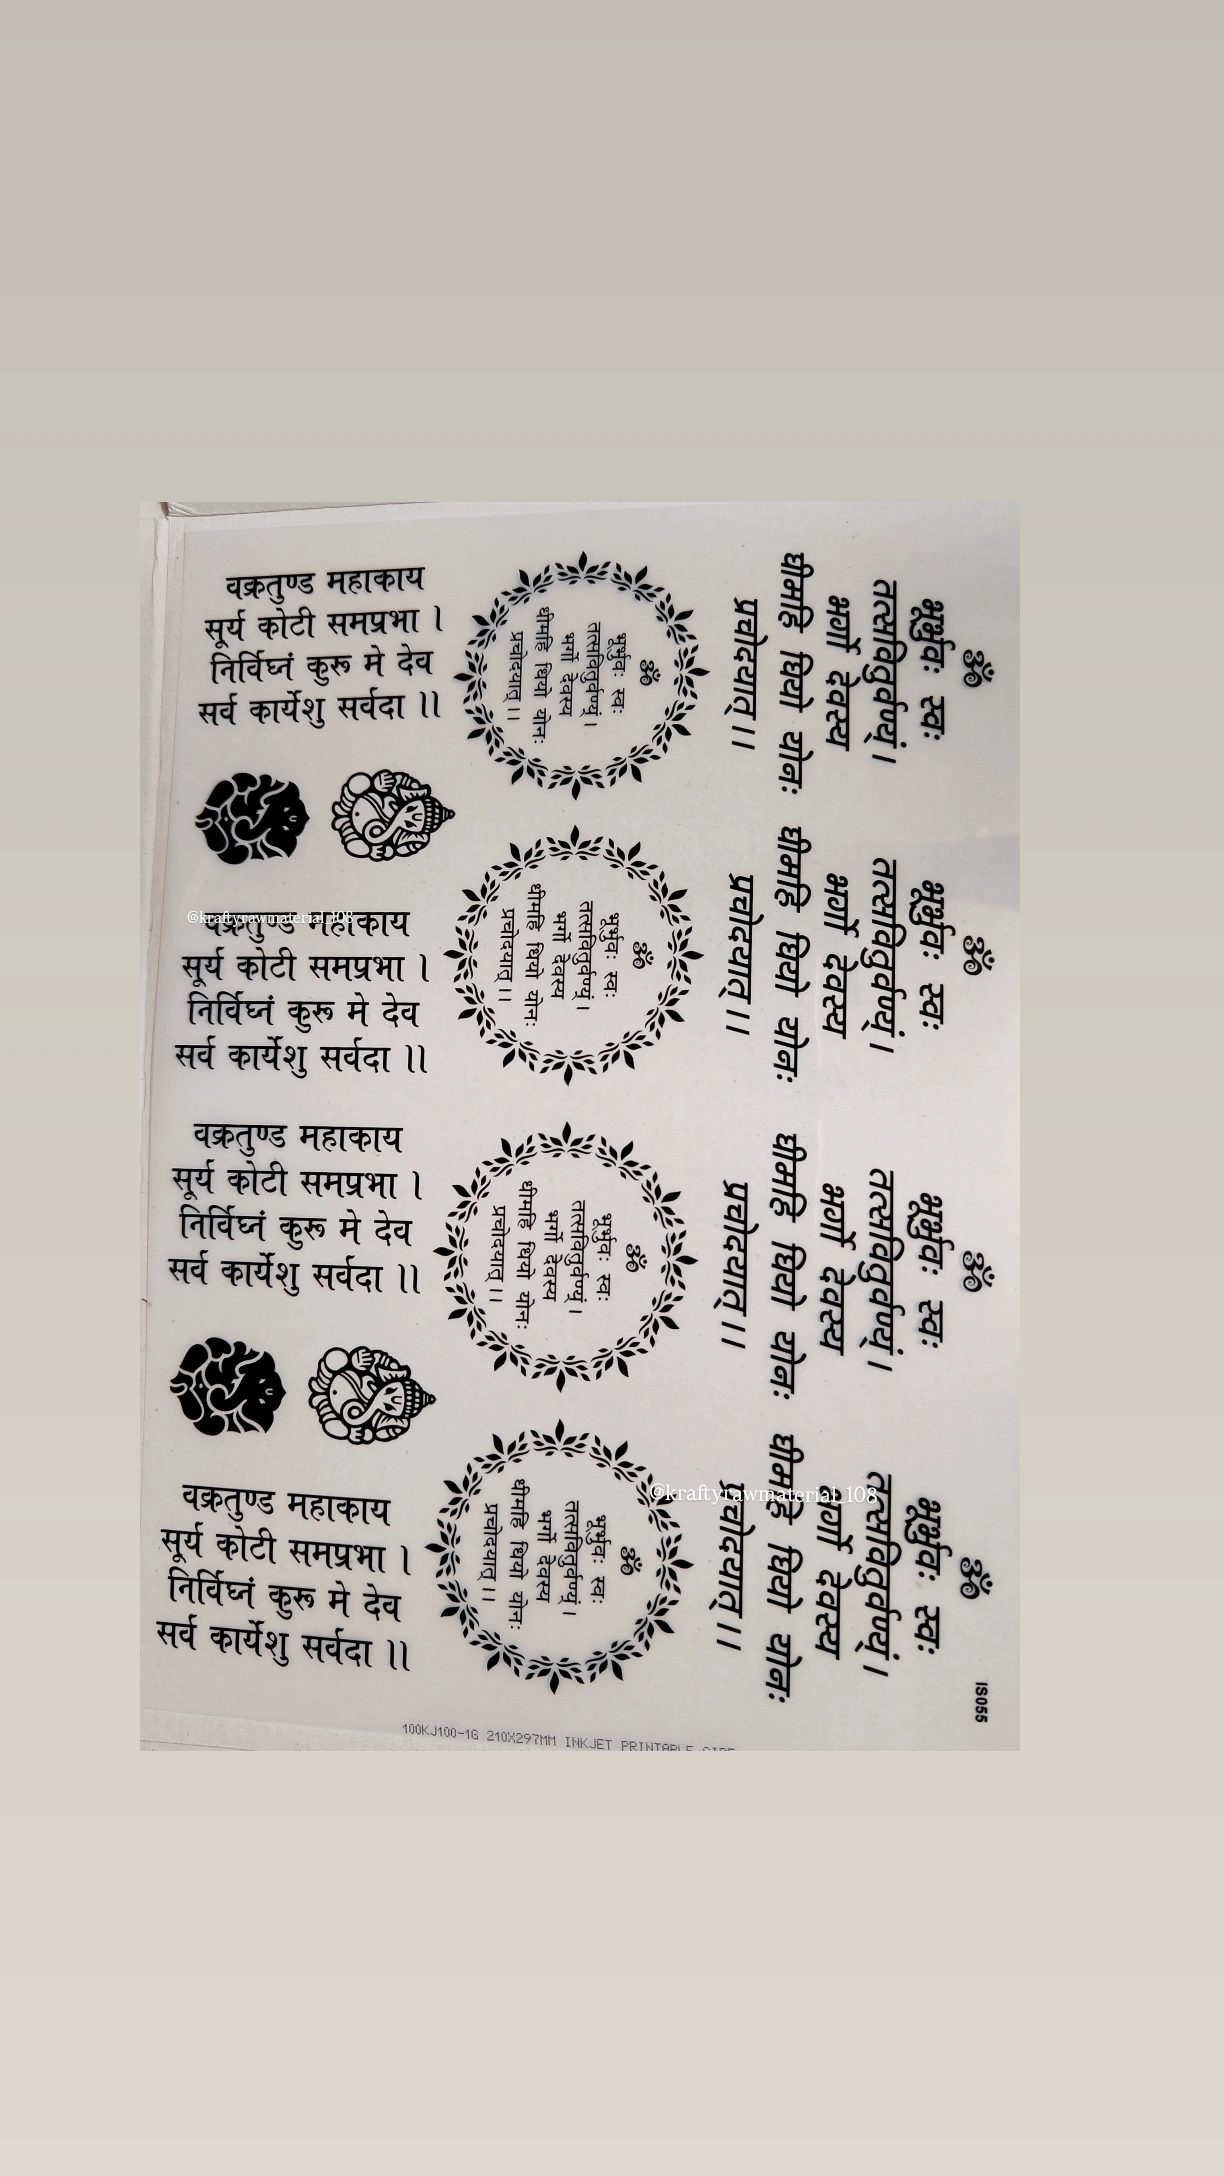 वक्रतुण्ड महाकाय
सूर्य कोटी समप्रभा ।
निर्विघ्नं कुरू मे देव
सर्व कार्येशु सर्वदा ।।
@kraftyrawmaterial_108
वक्रतुण्ड महाकाय
सूर्य कोटी समप्रभा ।
निर्विघ्नं कुरू मे देव
सर्व कार्येशु सर्वदा ।।
वक्रतुण्ड महाकाय
सूर्य कोटी समप्रभा ।
निर्विघ्नं कुरू मे देव
सर्व कार्येशु सर्वदा ।।
वक्रतुण्ड महाकाय
सूर्य कोटी समप्रभा ।
निर्विघ्नं कुरू मे देव
सर्व कार्येशु सर्वदा ।।
ॐ
भूर्भुवः स्वः
तत्सवितुर्वण्यं ।
भर्गो देवस्य
धीमहि धियो योनः
प्रचोदयात् ।।
ॐ
भूर्भुवः स्वः
तत्सवितुर्वण्यं ।
भर्गो देवस्य
धीमहि धियो योनः
प्रचोदयात् ।।
ॐ
भूर्भुवः स्वः
तत्सवितुर्वण्यं ।
भर्गो देवस्य
धीमहि धियो योनः
प्रचोदयात् ।।
ॐ
भूर्भुवः स्वः
तत्सवितुर्वण्यं ।
भर्गो देवस्य
धीमहि धियो योनः
प्रचोदयात् ।।
ॐ
भूर्भुवः स्वः
तत्सवितुर्वण्यं ।
भर्गो देवस्य
धीमहि धियो योनः
प्रचोदयात् ।।
ॐ
भूर्भुवः स्वः
तत्सवितुर्वण्यं ।
भर्गो देवस्य
धीमहि धियो योनः
प्रचोदयात् ।।
ॐ
भूर्भुवः स्वः
तत्सवितुर्वण्यं ।
भर्गो देवस्य
धीमहि धियो योनः
प्रचोदयात् ।।
ॐ
भूर्भुवः स्वः
तत्सवितुर्वण्यं ।
भर्गो देवस्य
धीमहि धियो योनः
प्रचोदयात् ।।
@kraftyrawmaterial_108
IS055
100KJ100-1G 210X297MM INKJET PRINTABLE SIDE